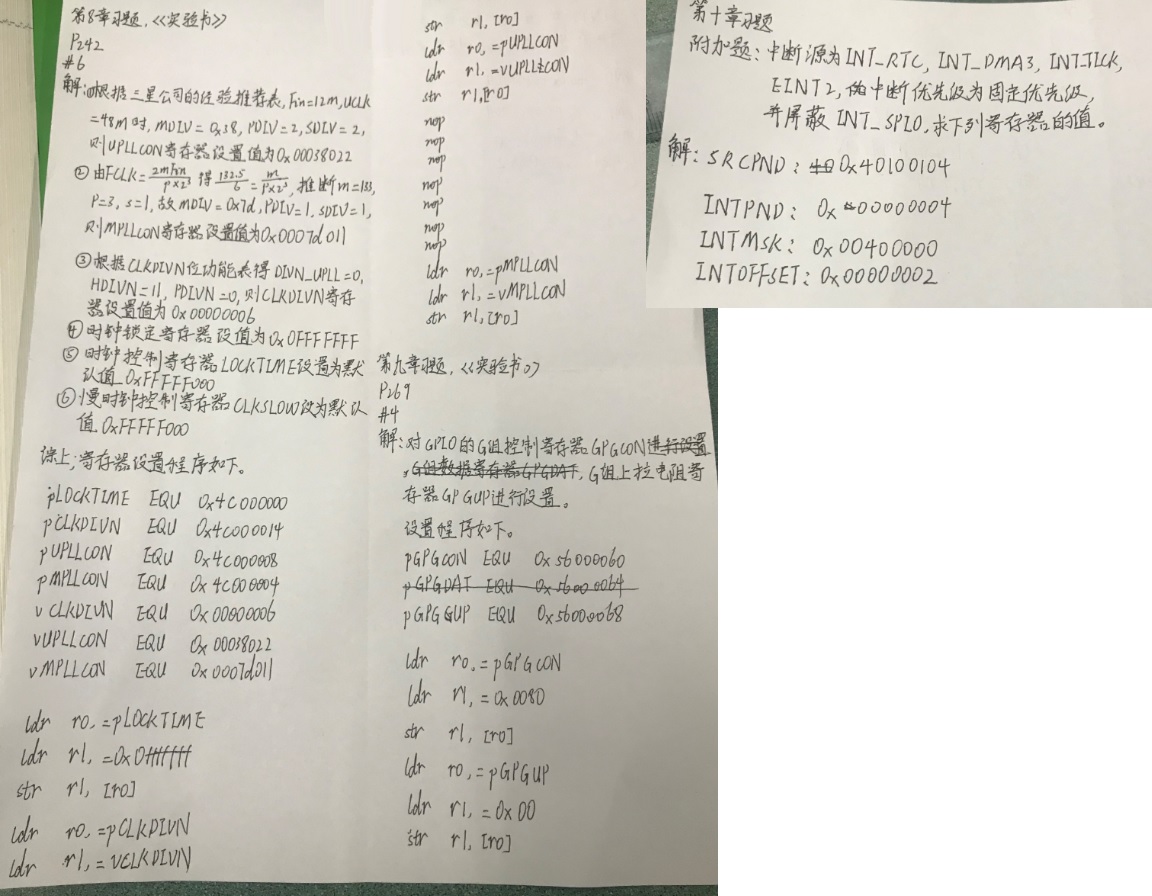 第8章习题,《实验书》
P242
#6
解:①根据三星公司的经验推荐表,Fin=12m,UCLK
=48m时,MDIV=0x38,PDIV=2,SDIV=2,
则UPLLCON寄存器设置值为0x00038022
②由FCLK=2mFin/p×2^s 得132.5/6=m/p×2^s,推断m=133,
P=3,s=1,故MDIV=0x7d,PDIV=1,SDIV=1,
则MPLLCON寄存器设置值为0x0007d011
③根据CLKDIVN位功能表得DIVN_UPLL=0,
HDIVN=11,PDIVN=0,则CLKDIVN寄存
器设置值为0x00000006
④时钟锁定寄存器设值为0x0FFFFFFF
⑤时钟控制寄存器LOCKTIME设置为默
认值0xFFFFF000
⑥慢时钟控制寄存器CLKSLOW改为默认
值0xFFFFF000
综上,寄存器设置程序如下。
pLOCKTIME EQU 0x4C000000
pCLKDIVN EQU 0x4C000014
pUPLLCON EQU 0x4C000008
pMPLLCON EQU 0x4C000004
vCLKDIVN EQU 0x00000006
vUPLLCON EQU 0x00038022
vMPLLCON EQU 0x0007d011
ldr r0,=pLOCKTIME
ldr r1,=0x0fffffff
str r1,[r0]
ldr r0,=pCLKDIVN
ldr r1,=vCLKDIVN
str r1,[r0]
ldr r0,=pUPLLCON
ldr r1,=vUPLLCON
str r1,[r0]
nop
nop
nop
nop
nop
nop
nop
ldr r0,=pMPLLCON
ldr r1,=vMPLLCON
str r1,[r0]
第九章习题,《实验书》
P269
#4
解:对GPIO的G组控制寄存器GPGCON进行设置
,G组数据寄存器GPGDAT,G组上拉电阻寄
存器GPGUP进行设置。
设置程序如下。
pGPGCON EQU 0x56000060
pGPGDAT EQU 0x56000064
pGPGGUP EQU 0x56000068
ldr r0,=pGPGCON
ldr r1,=0x0080
str r1,[r0]
ldr r0,=pGPGUP
ldr r1,=0x00
str r1,[r0]
第十章习题
附加题:中断源为INT_RTC,INT_DMA3,INT_TICK,
EINT2,中断优先级为固定优先级,
并屏蔽INT_SPI0,求下列寄存器的值。
解:SRCPND:0x40100104
INTPND:0x00000004
INTMSK:0x00400000
INTOFFSET:0x00000002